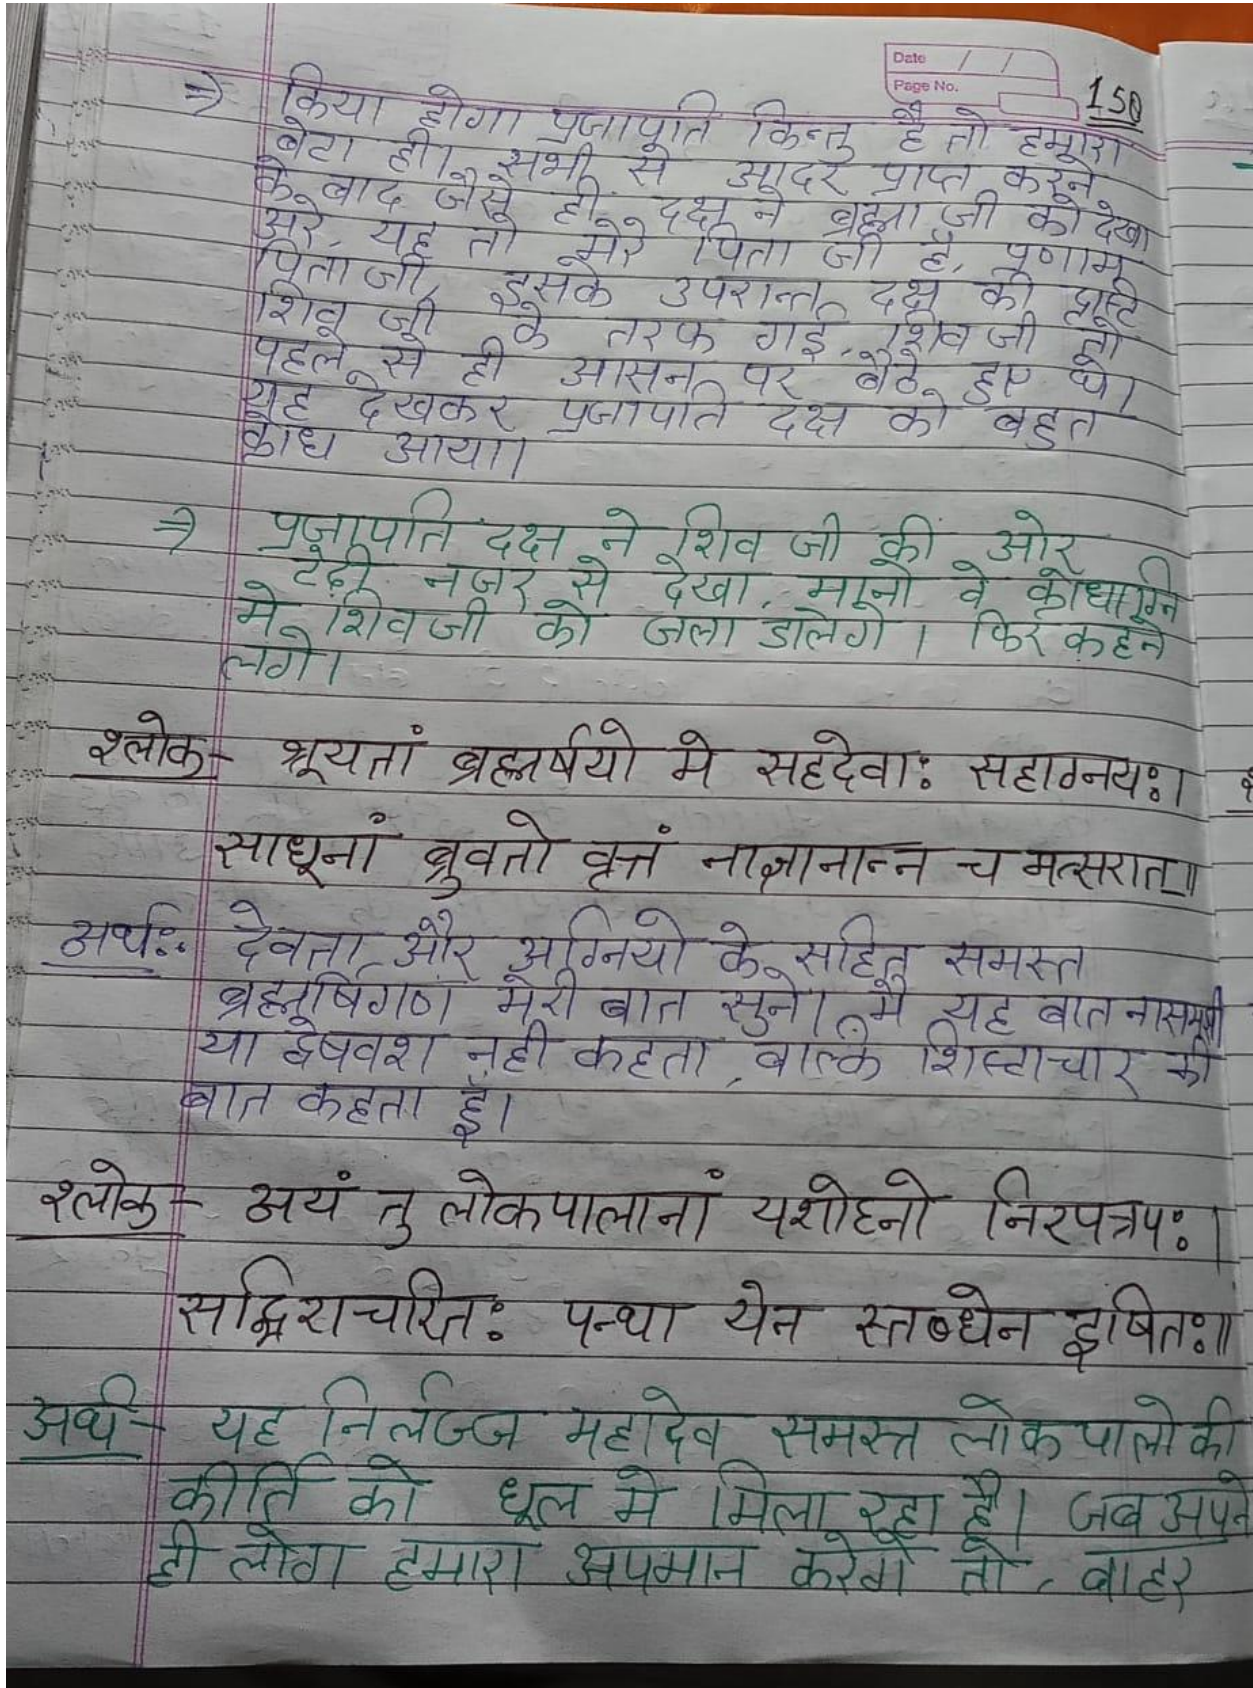 Date / /
Page No.
150
⇒ किया होगा प्रजापति किन्तु है तो हमारा
बेटा ही। सभी से आदर प्राप्त करने
के बाद जैसे ही दक्ष ने ब्रह्मा जी को देखा
अरे, यह तो मेरे पिता जी है, प्रणाम
पिता जी, इसके उपरान्त दक्ष की दृष्टि
शिव जी के तरफ गई, शिव जी तो
पहले से ही आसन पर बैठे हुए थे।
यह देखकर प्रजापति दक्ष को बहुत
क्रोध आया।
⇒ प्रजापति दक्ष ने शिव जी की ओर
टेढ़ी नजर से देखा, मानो वे क्रोधाग्नि
मे शिवजी को जला डालेगे। फिर कहने
लगे।
श्लोक - श्रूयतां ब्रह्मर्षयो मे सहदेवाः सहाग्नयः।
साधूनां ब्रुवतो वृत्तं नाज्ञानान्न च मत्सरात्॥
अर्थः देवता और अग्नियो के सहित समस्त
ब्रह्मर्षिगण मेरी बात सुने। मै यह बात नासमझी
या द्वेषवश नही कहता, बल्कि शिस्टाचार की
बात कहता हूँ।
श्लोक - अयं तु लोकपालानां यशोहनो निरपत्रपः।
सद्भिराचरितः पन्था येन स्तब्धेन दूषितः॥
अर्थ - यह निर्लज्ज महादेव समस्त लोकपालो की
कीर्ति को धूल मे मिला रहा है। जब अपने
ही लोग हमारा अपमान करेगे तो, बाहर